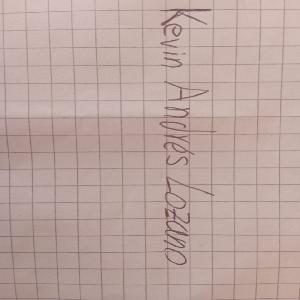 Kevin Andrés Lozano